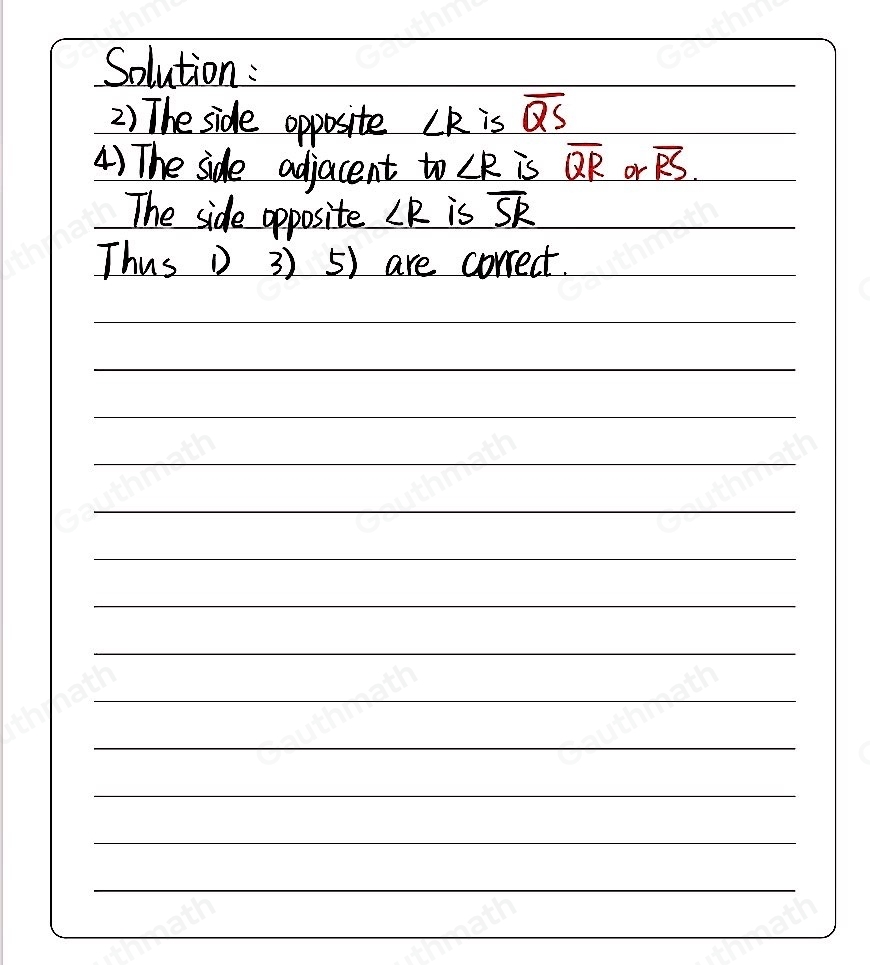 Solution:
2) The side opposite ∠R is Q̅S̅
4) The side adjacent to ∠R is Q̅R̅ or R̅S̅.
The side opposite ∠R is S̅R̅
Thus 1) 3) 5) are correct.
Gauthmath